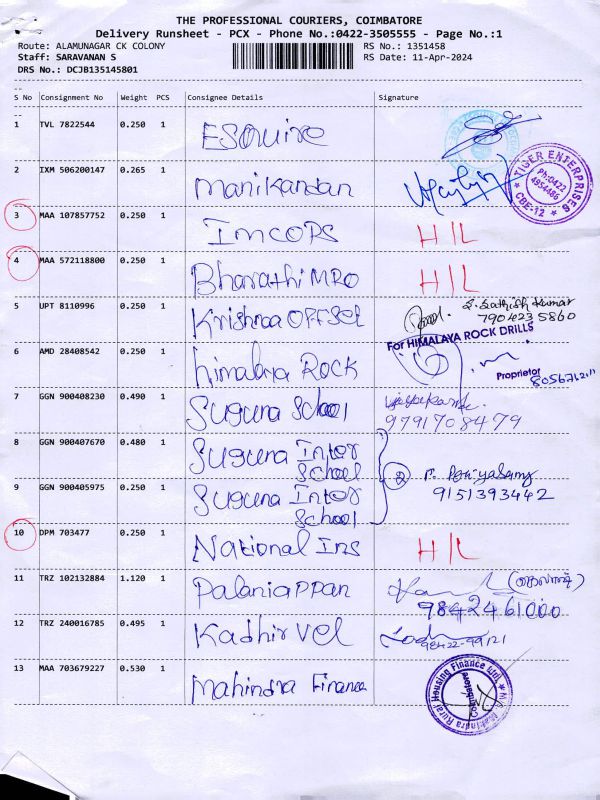 THE PROFESSIONAL COURIERS, COIMBATORE
Delivery Runsheet - PCX - Phone No.:0422-3505555 - Page No.:1
Route: ALAMUNAGAR CK COLONY RS No.: 1351458
Staff: SARAVANAN S RS Date: 11-Apr-2024
DRS No.: DCJB135145801
S No Consignment No Weight PCS Consignee Details Signature
1 TVL 7822544 0.250 1 ESquire
2 IXM 506200147 0.265 1 Manikandan
TIGER ENTERPRISES
Ph:0422
4954486
CBE-12
3 MAA 107857752 0.250 1 IMCOPS H/L
4 MAA 572118800 0.250 1 Bharathi MRO H/L
5 UPT 8110996 0.250 1 Krishna OFFSet S. Sathish Kumar
7904235860
For HIMALAYA ROCK DRILLS
6 AMD 28408542 0.250 1 himalaya ROCK
Proprietor
7 GGN 900408230 0.490 1 Suguna School
9791708479
8 GGN 900407670 0.480 1 Suguna Inter School
9 GGN 900405975 0.250 1 Suguna Inter School
② P. Periyasamy
9151393442
10 DPM 703477 0.250 1 National Ins H/L
11 TRZ 102132884 1.120 1 Palaniappan
9842461000
12 TRZ 240016785 0.495 1 Kadhirvel
98422-99121
13 MAA 703679227 0.530 1 Mahindra Finance
Mahindra Rural Housing Finance Ltd.
Coimbatore